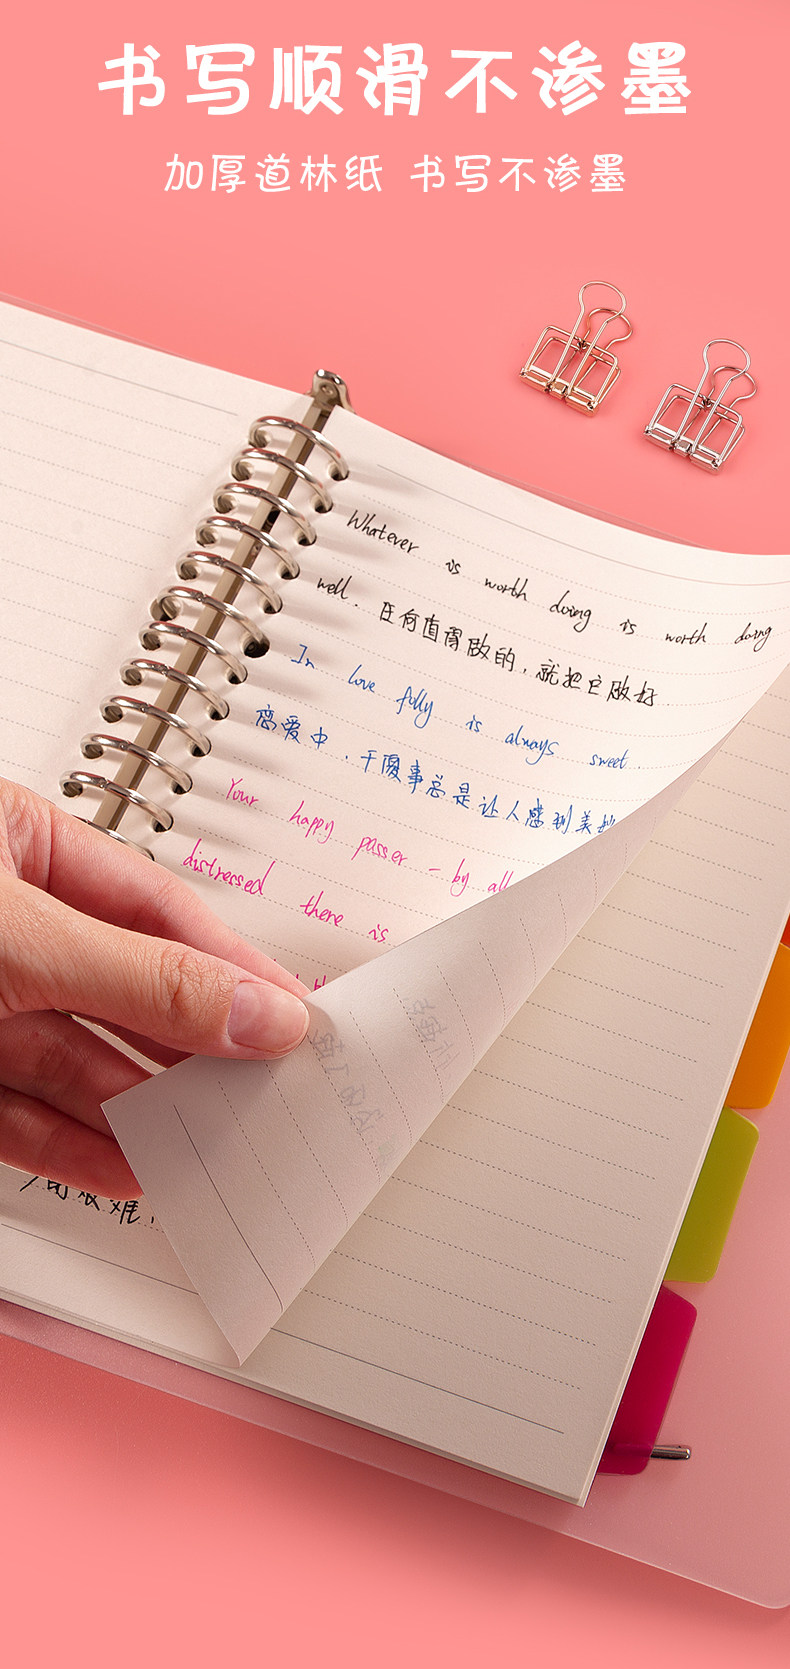 书写顺滑不渗墨
加厚道林纸 书写不渗墨
Whatever is worth doing is worth doing
well. 任何值得做的，就把它做好
In love folly is always sweet.
恋爱中，干傻事总是让人感到美妙
Your happy passer-by all
distressed there is
艰难，